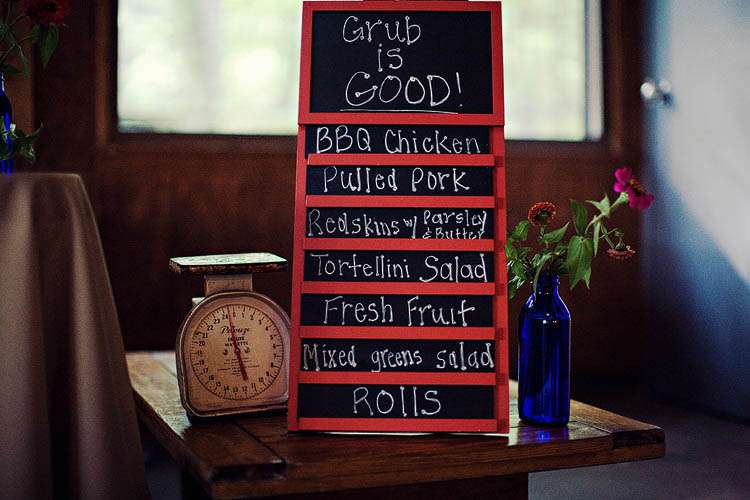 Grub
is
GOOD!
BBQ Chicken
Pulled Pork
Redskins w/ Parsley
& Butter
Tortellini Salad
Fresh Fruit
Mixed greens salad
Rolls
Pelouze